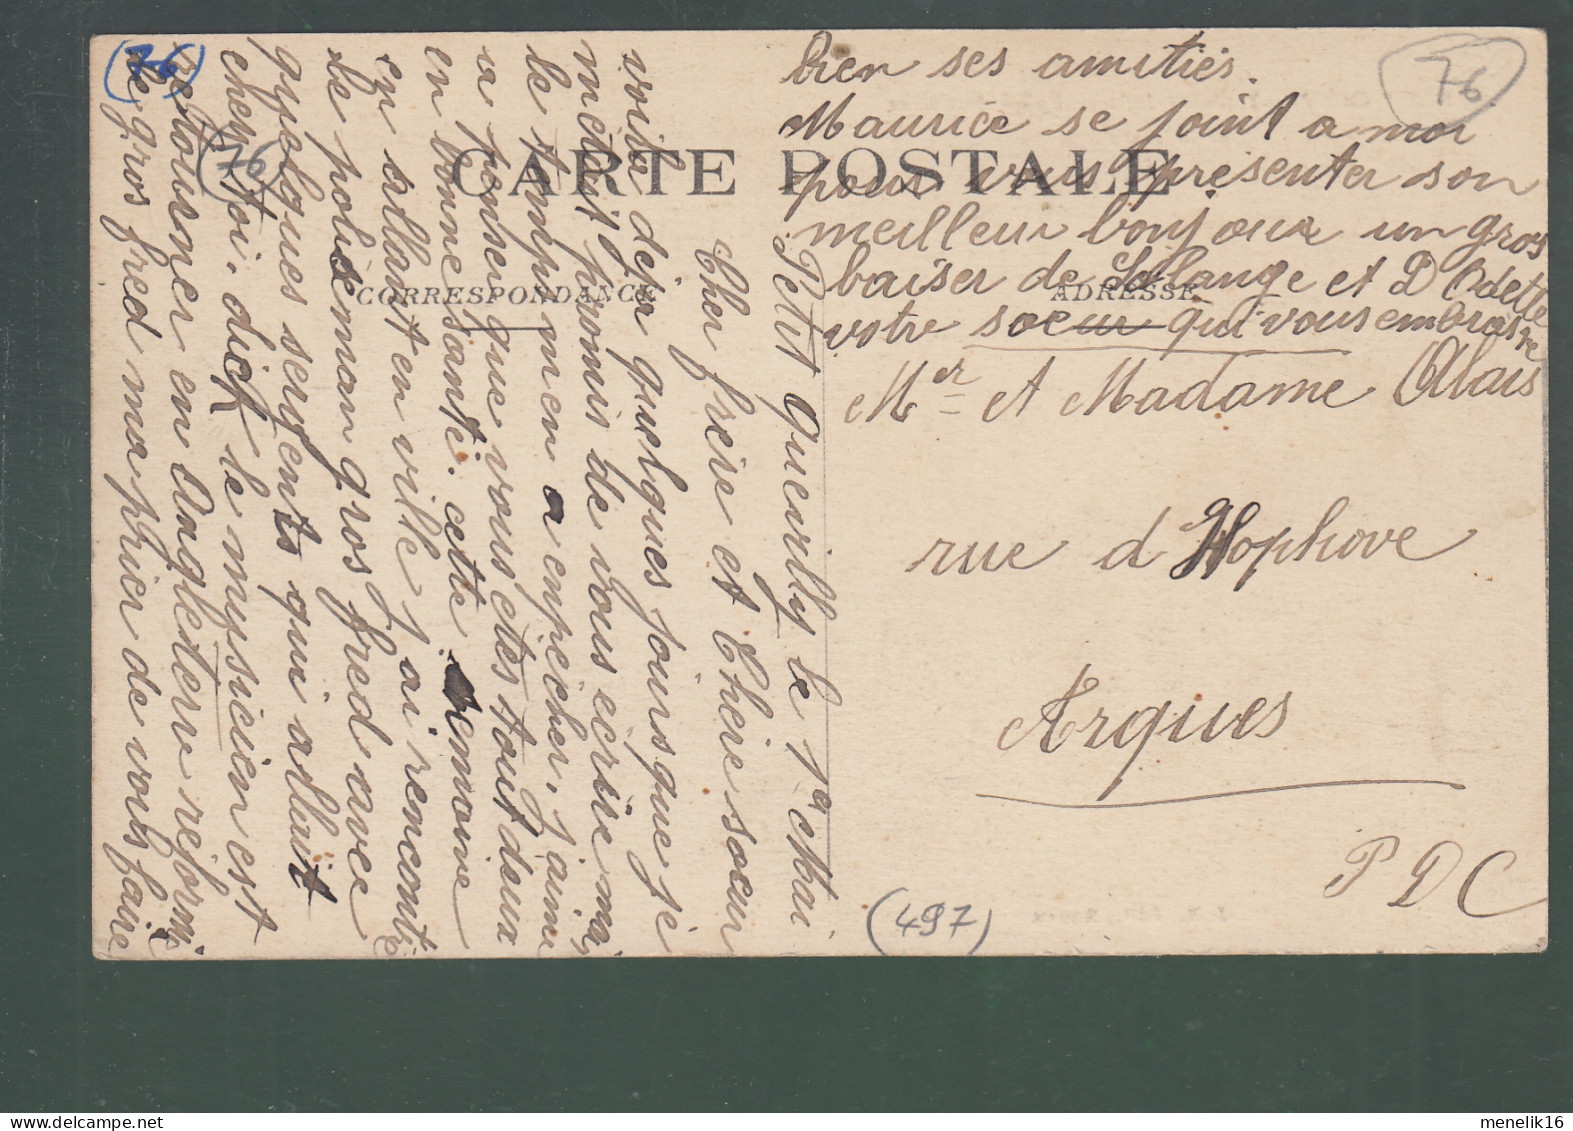 Petit quevilly le 1er Mai
Cher frère et Chère soeur
voila déja quelques jours que je
métait promis de vous écrire mai
le temp m'en a enpécher, j'aime
a penser que vous etes tout deux
en bonne santé. cette semaine
en allant en ville j'ai rencontré
le polisseman gros fred avec
quelques sergents qui allait
chez toi. dick le mysicien est
retourner en Angleterre réformé
le gros fred ma prier de vous faire
bien ses amitiés.
Maurice se joint a moi
pour vous présenter son
meilleur bonjour un gros
baiser de Solange et D Odette
votre soeur qui vous embrasse
CARTE POSTALE
CORRESPONDANCE
ADRESSE
Mer et Madame Alais
rue d Hophove
Arques
P D C
(76)
(76)
76
(497)
menelik16